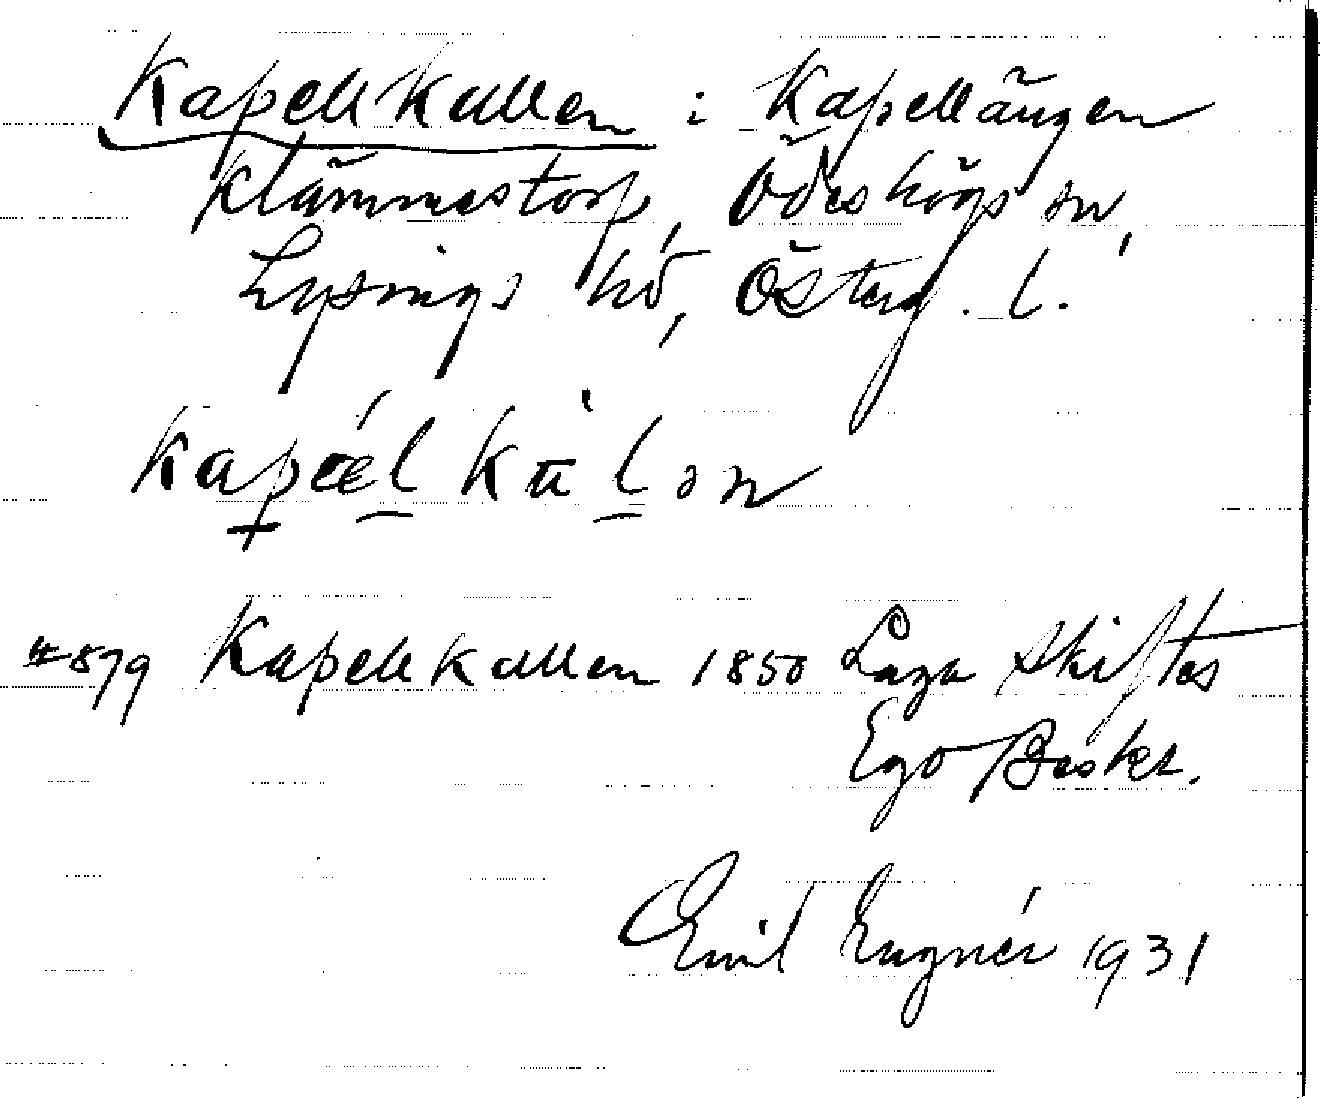 Kapellkullen i Kapellängen
Klämmestorp, Ödeshögs sn,
Lysings hd, Österg. l.
#879 Kapellkullen 1850 Laga Skiftes
Ego Beskr.
Emil Engnér 1931